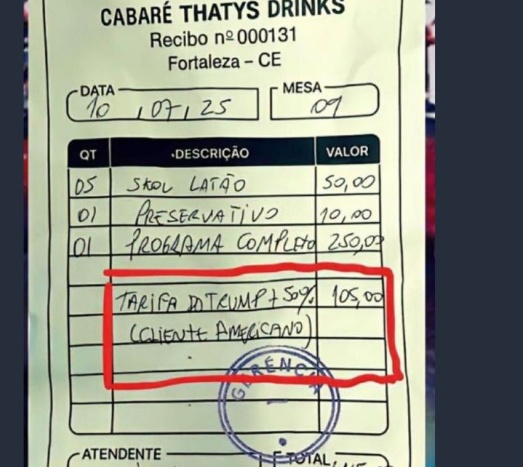 CABARÉ THATYS DRINKS
Recibo nº 000131
Fortaleza – CE
DATA
10 / 07 / 25
MESA
09
QT DESCRIÇÃO VALOR
05 SKOL LATÃO 50,00
01 PRESERVATIVO 10,00
01 PROGRAMA COMPLETO 250,00
TARIFA DO TRUMP + 50% 105,00
(CLIENTE AMERICANO)
GERÊNCIA
ATENDENTE
TOTAL